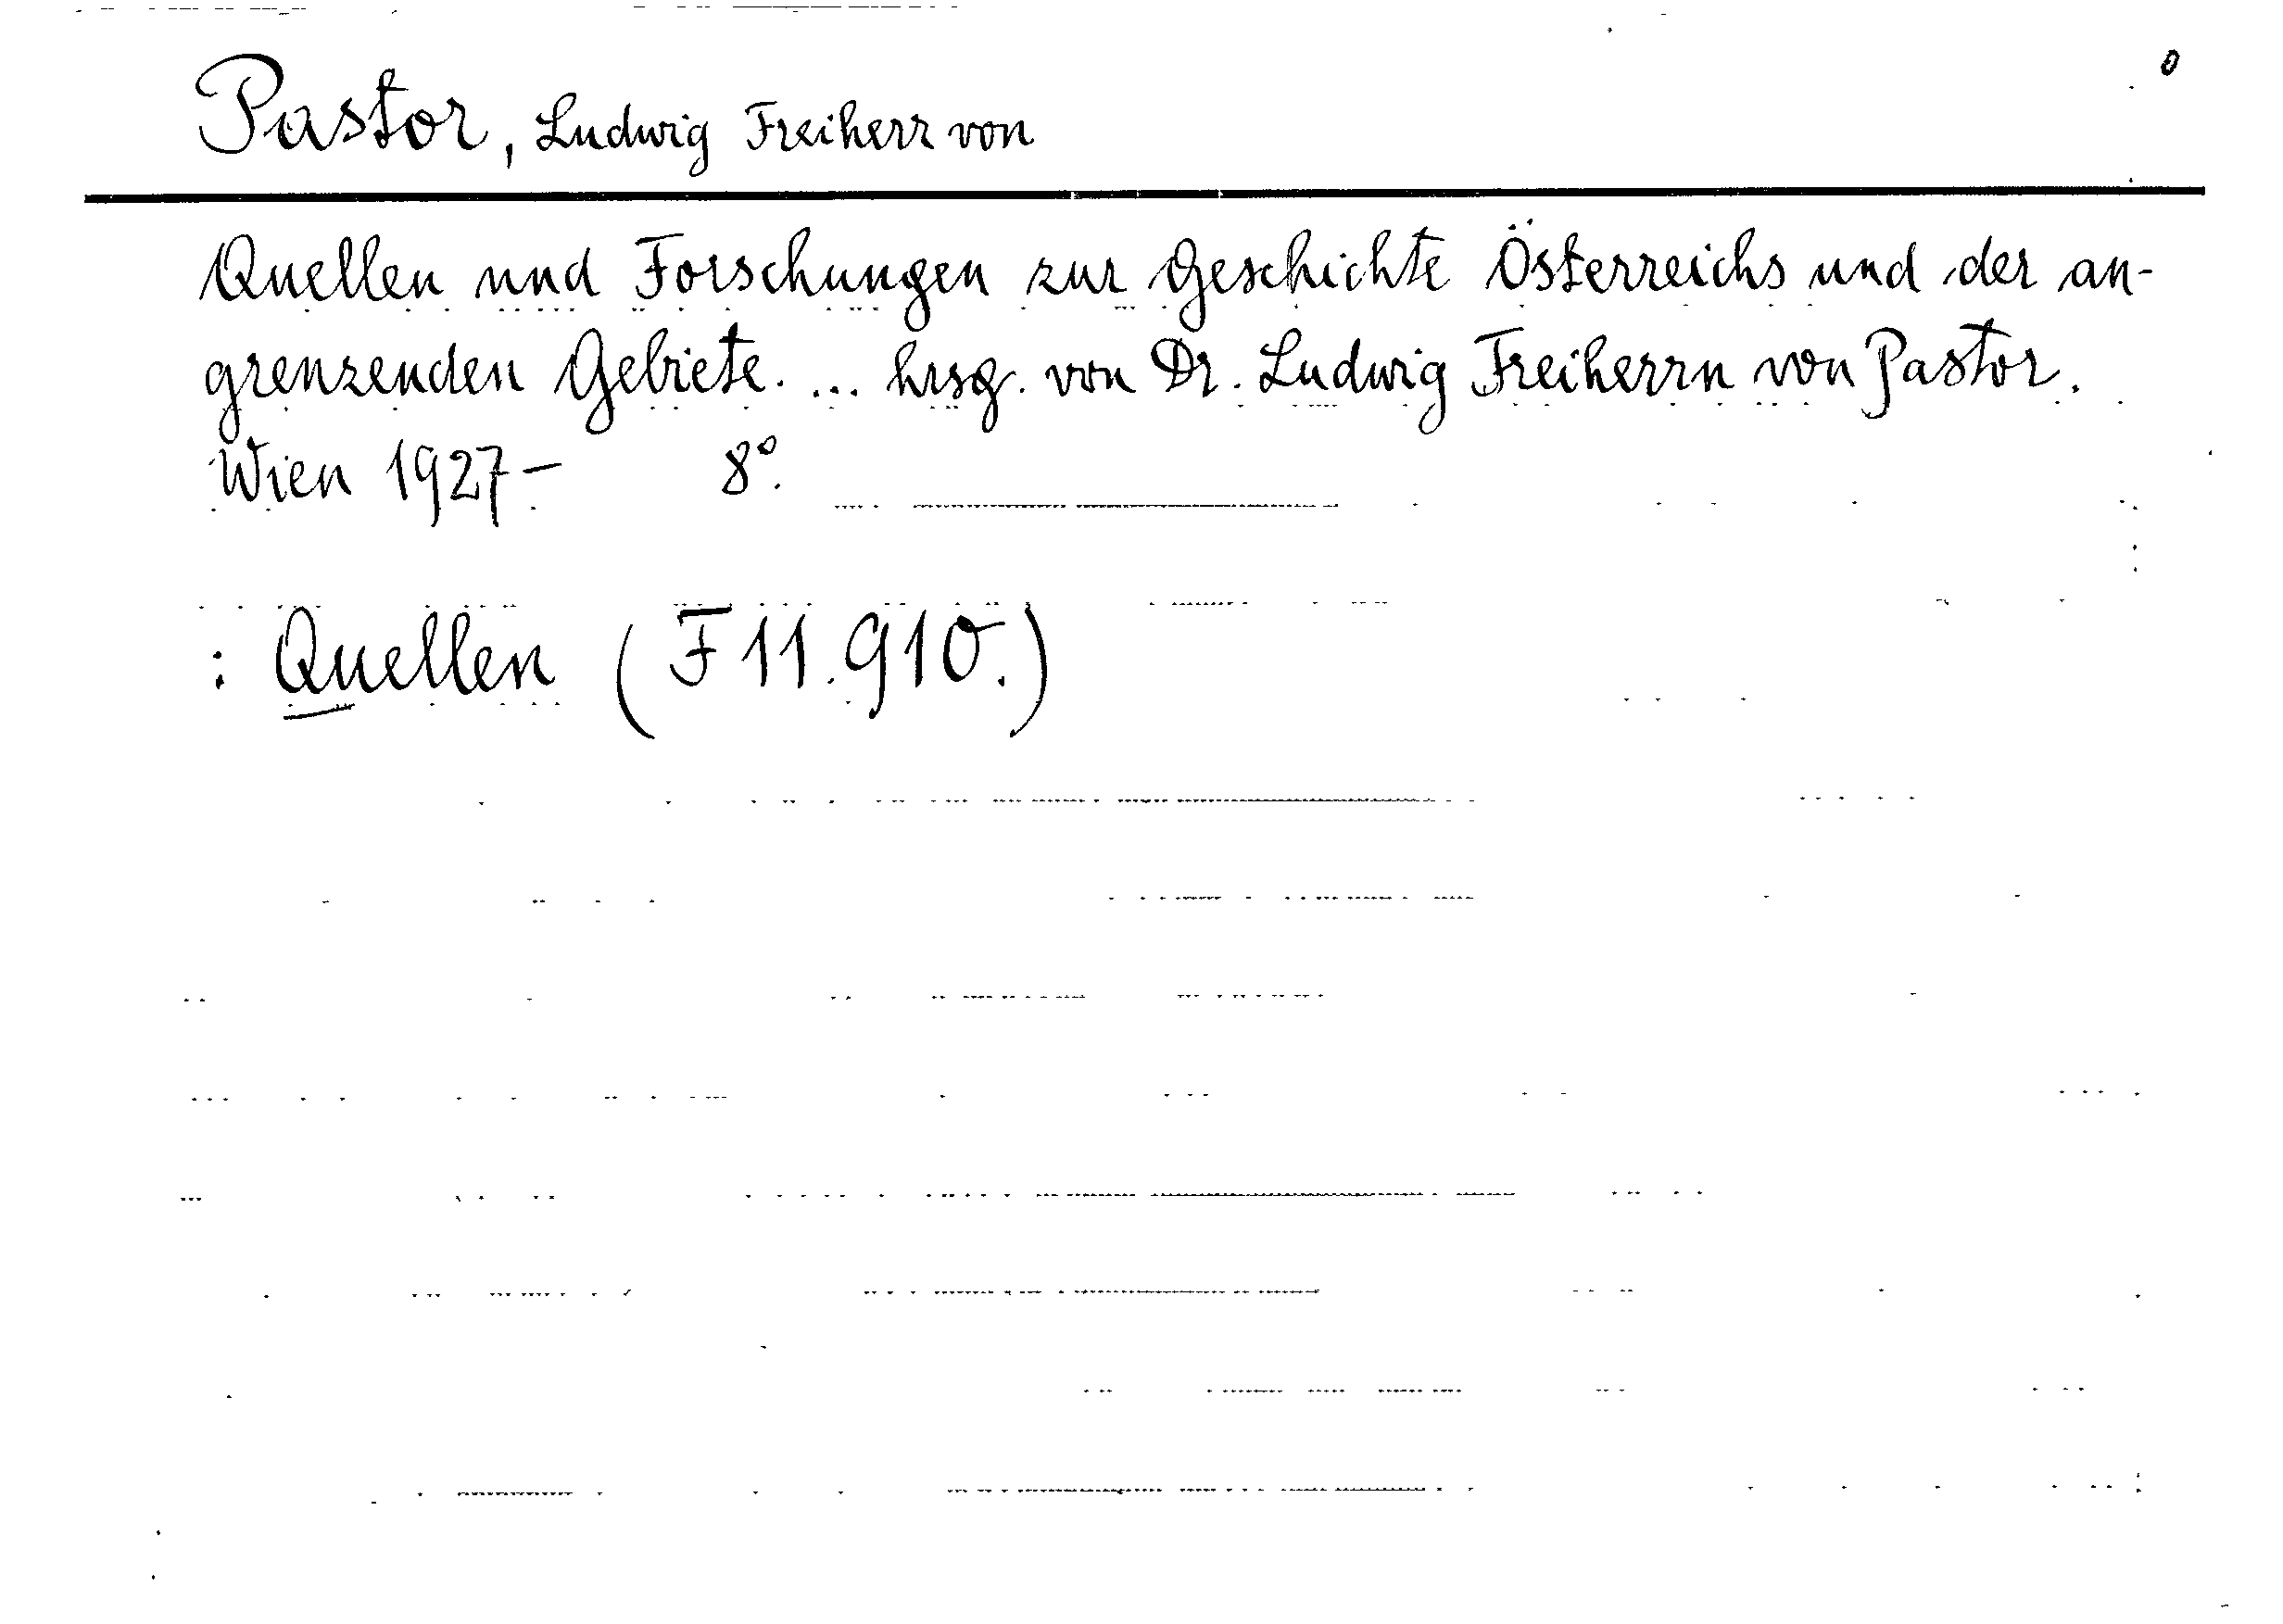 0
Pastor, Ludwig Freiherr von
Quellen und Forschungen zur Geschichte Österreichs und der an-
grenzenden Gebiete. ... hrsg. von Dr. Ludwig Freiherrn von Pastor.
Wien 1927- 8°.
: Quellen (F 11.910.)